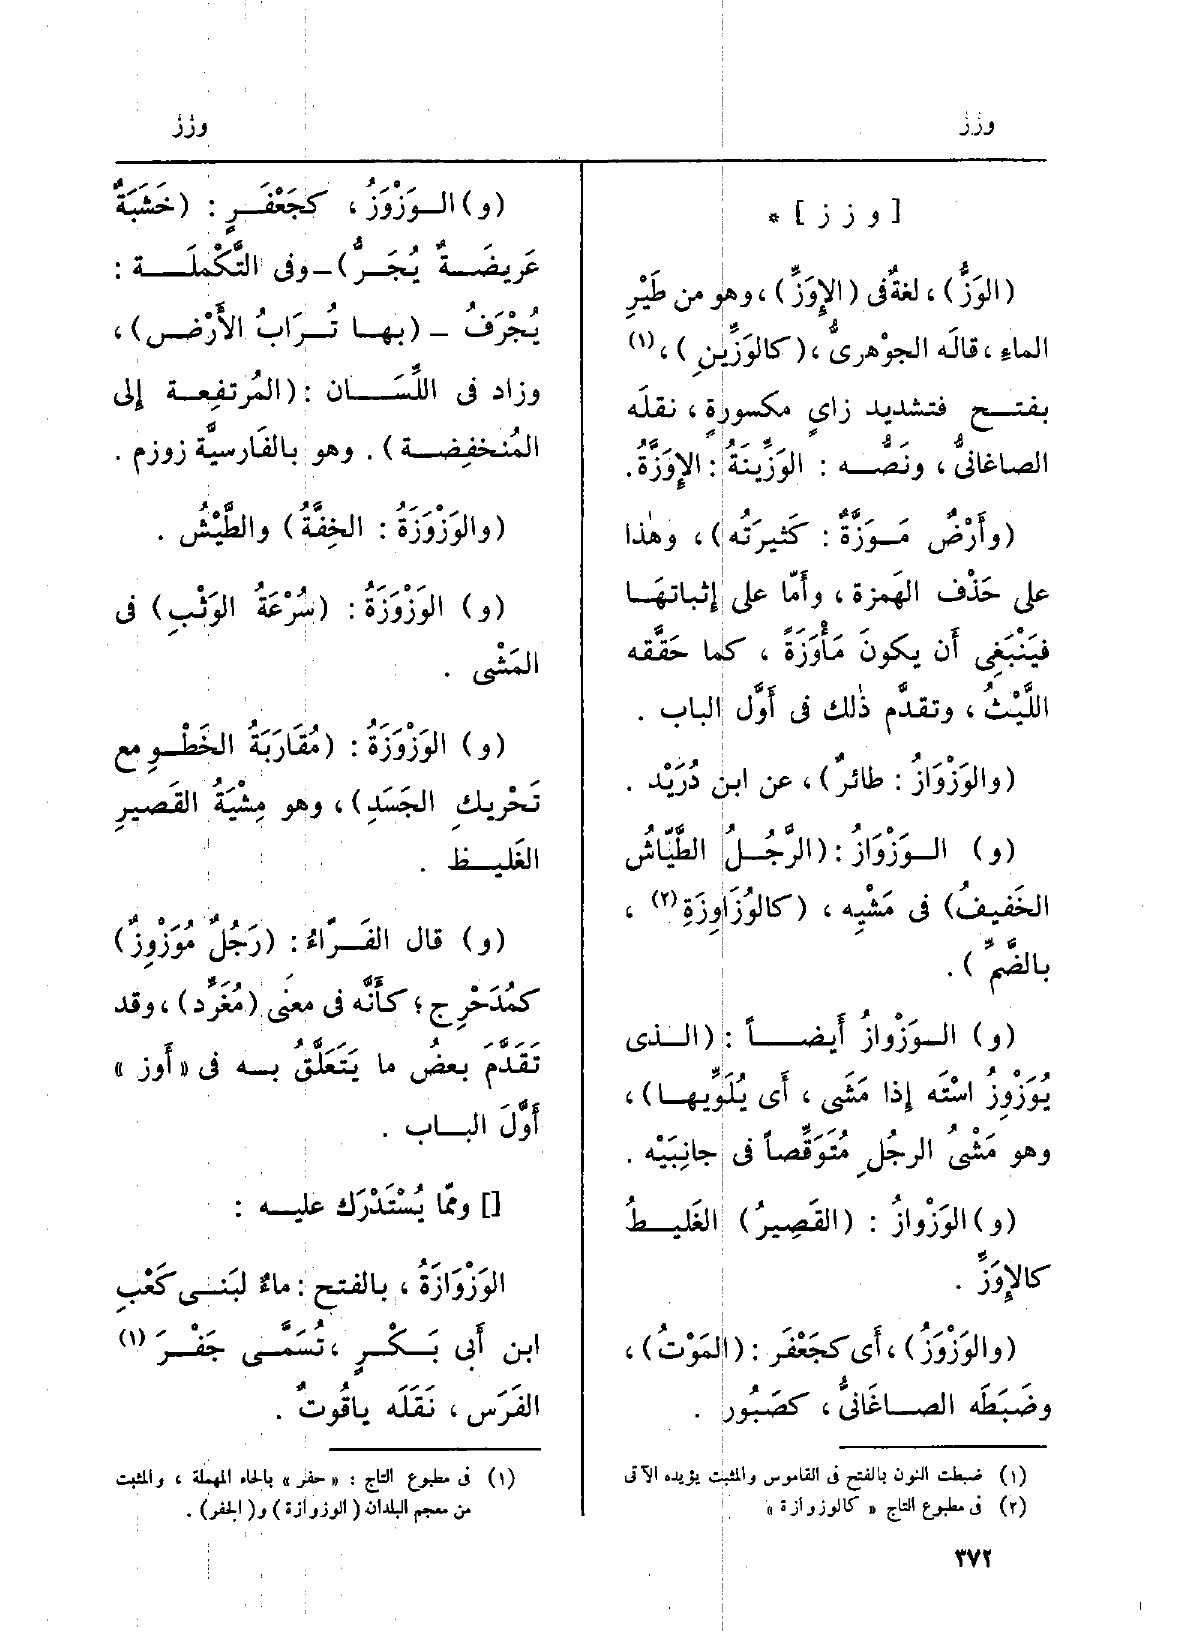 وزز
وزز
[ و ز ز ] *
(الوَزُّ)، لغةٌ فى (الإِوَزِّ)، وهو من طَيْرِ
الماءِ، قالَه الجوْهرىُّ، (كالوَزِّينِ)،(١)
بفتــح فتشديد زاىٍ مكسورةٍ، نقلَه
الصاغانىُّ، ونَصُّــه : الوَزِّينَةُ : الإِوَزَّةُ.
(وأَرْضٌ مَــوَزَّةٌ : كَثيرَتُه)، وهٰذا
على حَذْف الهَمزة، وأَمّا على إِثباتهَــا
فيَنْبَغِى أَن يكونَ مَأْوَزَةً ، كما حَقَّقه
اللَّيْثُ، وتقدَّم ذٰلك فى أَوَّل الباب .
(والوَزْوَازُ : طائرٌ)، عن ابن دُرَيْد .
(و) الــوَزْوَازُ : (الرَّجُــلُ الطَّيّاشُ
الخَفيفُ) فى مَشْيِه ، (كالوُزَاوِزَةِ(٢) ،
بالضَّمِّ) .
(و) الــوَزْوازُ أَيضــــاً : (الــذى
يُوَزْوِزُ اسْتَه إِذا مَشَى ، أَى يُلَوِّيهــا)،
وهو مَشْىُ الرجُلِ مُتَوَقِّصاً فى جانِبَيْه .
(و) الوَزْوازُ : (القَصِيرُ) الغَليــظُ
كالإِوَزِّ .
(والوَزْوَزُ)، أَى كجَعْفَر : (المَوْتُ)،
وضَبَطَه الصــاغَانىُّ، كصَبُور .
(١) ضبطت النون بالفتح فى القاموس والمثبت يؤيده الآتى
(٢) فى مطبوع التاج « كالوزوازة »
٣٧٢
(و) الــوَزْوَزُ، كجَعْفَــرٍ : (خَشَبَةٌ
عَريضَــةٌ يُجَــرُّ) ــ وفى التَّكْملَــة :
يُجْرَفُ ــ (بهــا تُــرَابُ الأَرْضِ)،
وزاد فى اللِّسَــان : (المُرتفِعــة إِلى
المُنخفِضــة) . وهو بالفَارسيَّة زوزم .
(والوَزْوَزَةُ : الخِفَّةُ) والطَّيْشُ .
(و) الوَزْوَزَةُ : (سُرْعَةُ الوَثْبِ) فى
المَشْى .
(و) الوَزْوَزَةُ : (مُقَارَبَةُ الخَطْــوِ مع
تَحْريكِ الجَسَدِ)، وهو مِشْيَةُ القَصيرِ
الغَليــظ .
(و) قال الفَــرّاءُ : (رَجُلٌ مُوَزْوِزٌ)
كمُدَحْرِج؛ كأَنَّه فى معنَى (مُغَرِّد)، وقد
تَقدَّمَ بعضُ ما يَتَعَلَّقُ بــه فى « أوز »
أَوَّلَ البــاب .
[] وممّا يُسْتَدْرَك عليــه :
الوَزْوَازَةُ ، بالفتح : ماءٌ لبَنــى كَعْبِ
ابن أَبى بَــكْــرٍ ، تُسَمَّــى جَفْــرَ(١)
الفَرَس ، نَقَلَه ياقُوتٌ .
(١) فى مطبوع التاج : « حفر » بالحاء المهملة ، والمثبت
من معجم البلدان (الوزوازة) و(الجفر) .